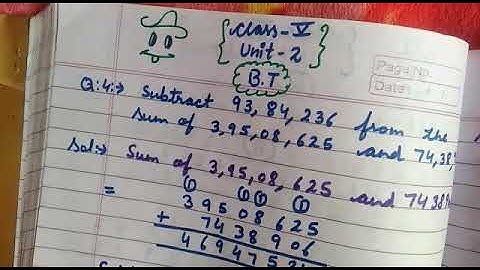 Class-V
Unit-2
B.T
Page No.
Date
Q:4:→ Subtract 93,84,236 from the
sum of 3,95,08,625 and 74,38,
Sol:→ Sum of 3,95,08,625 and 7438
= 1 1 1 1
39508625
+ 7438906
469475